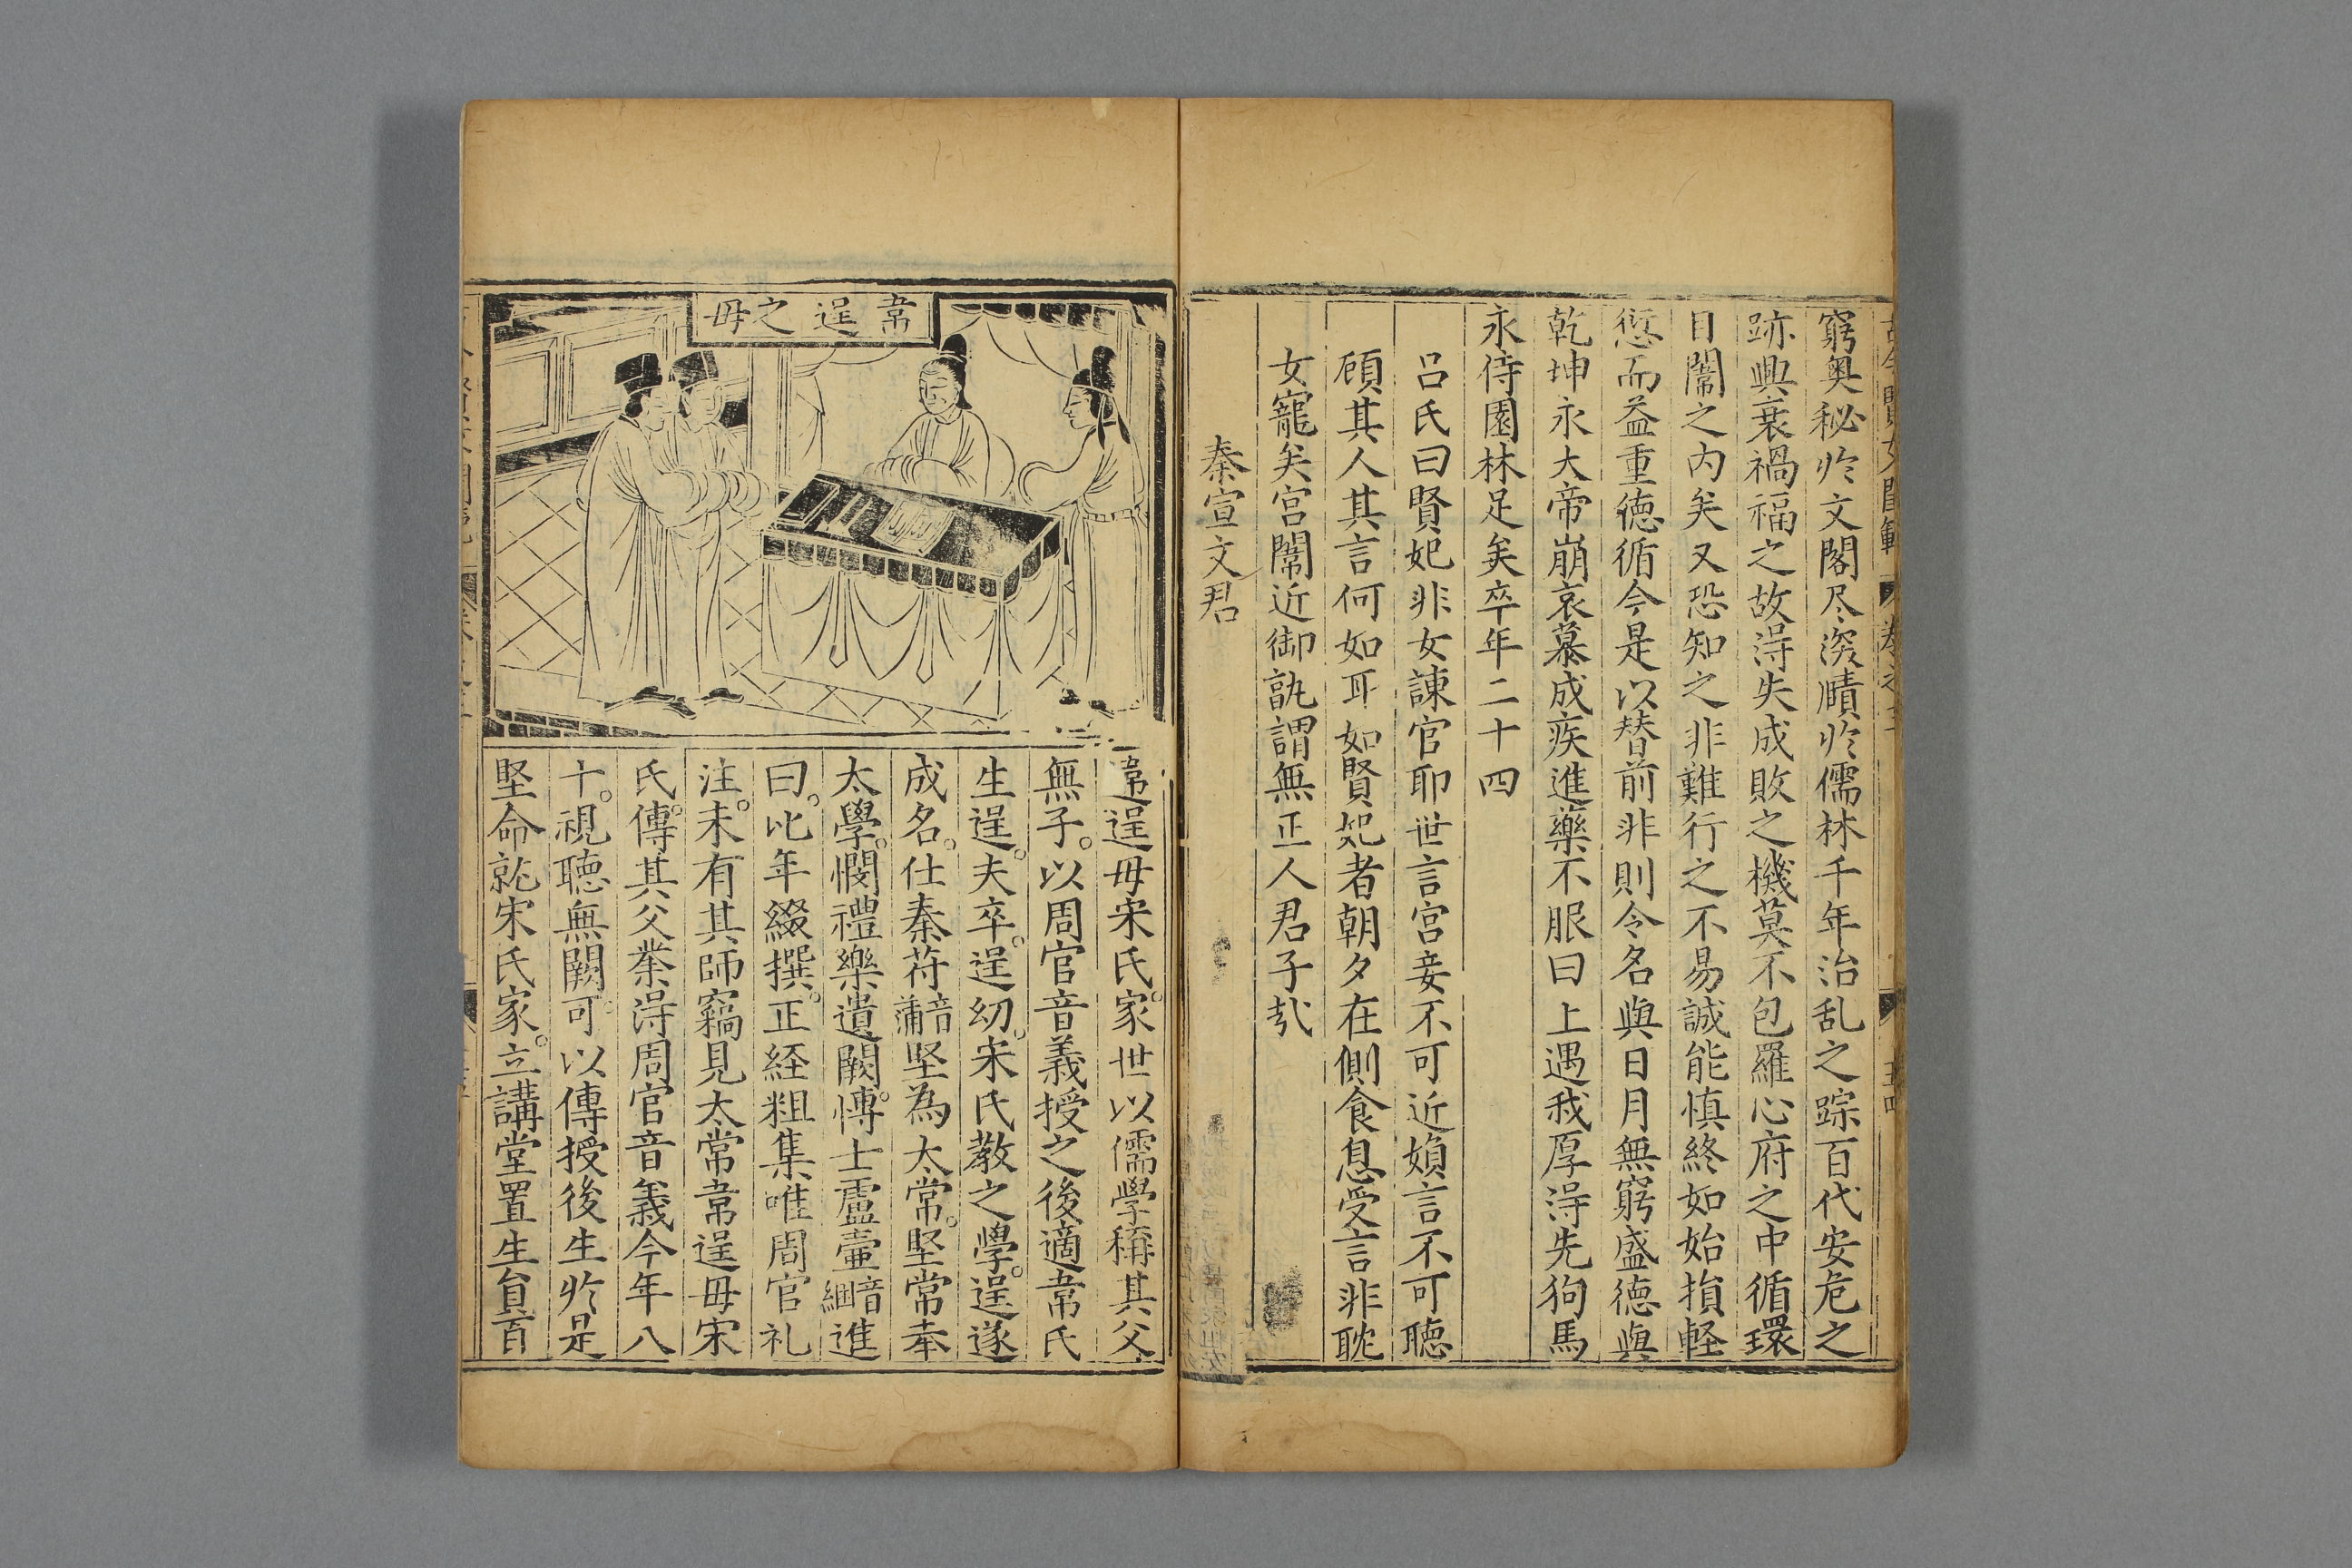 窮奥秘扵文閣尽深賾扵儒林千年治乱之踪百代安危之
跡興衰禍福之故淂失成敗之機莫不包羅心府之中循環
目闈之内矣又恐知之非難行之不易誠能慎終如始損軽
愆而益重徳循今是以替前非則令名與日月無窮盛徳與
乾坤永大帝崩哀慕成疾進藥不服曰上遇我厚淂先狗馬
永侍園林足矣卒年二十四
吕氏曰賢妃非女諫官耶世言宫妾不可近嬪言不可聴
顧其人其言何如耳如賢妃者朝夕在側食息受言非耽
女寵矣宫闈近御訙謂無正人君子㢤
秦宣文君
韋逞之毋
韋逞毋宋氏家世以儒學稱其父
無子以周官音義授之後適韋氏
生逞夫卒逞幼宋氏教之學逞遂
成名仕秦苻音蒲坚為太常坚常奉
太學憫禮樂遺闕愽士盧壷音綑進
曰比年綴撰正経粗集唯周官礼
注未有其師竊見太常韋逞毋宋
氏傳其父業淂周官音義今年八
十視聴無闕可以傳授後生扵是
坚命就宋氏家立講堂置生員百